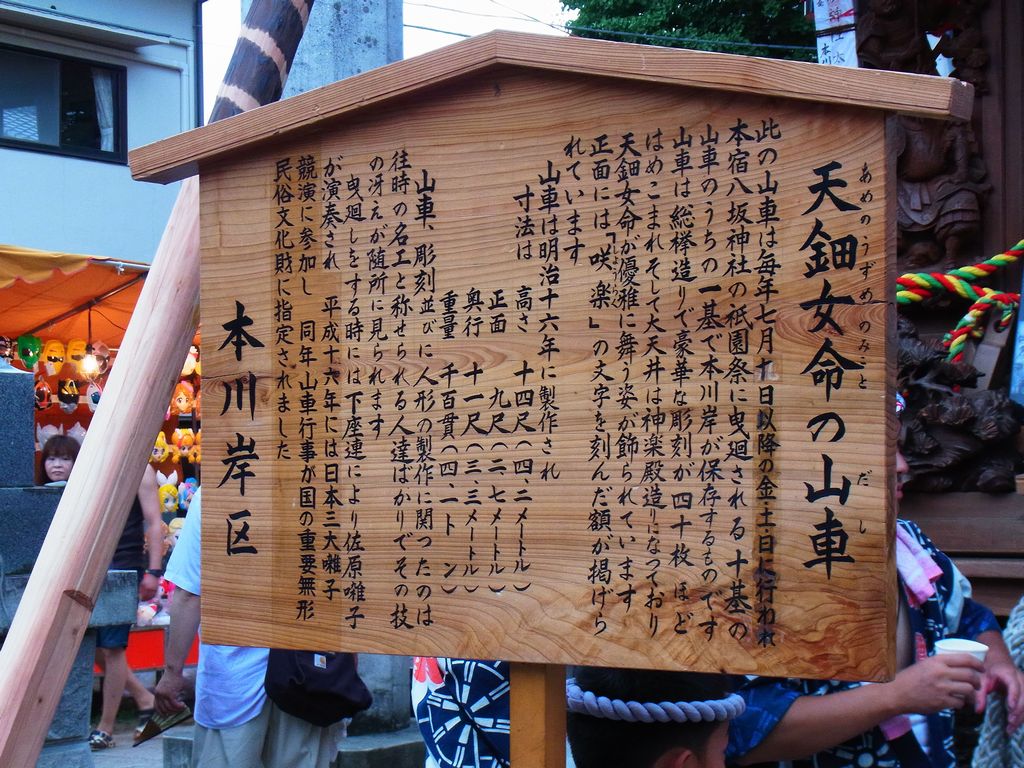 天鈿女命の山車
あめのうずめのみこと だし
此の山車は毎年七月十日以降の金土日に行われ
本宿八坂神社の祇園祭に曳廻される十基の
山車のうちの一基で本川岸が保存するものです
山車は総欅造りで豪華な彫刻が四十枚ほど
はめこまれそして大天井は神楽殿造りになっており
天鈿女命が優雅に舞う姿が飾られています
正面には「咲楽」の文字を刻んだ額が掲げら
れています
山車は明治十六年に製作され
寸法は
高さ 十四尺(四、二メートル)
正面 九尺(二、七メートル)
奥行 十一尺(三、三メートル)
重量 千百貫(四、一トン)
山車、彫刻並びに人形の製作に関ったのは
往時の名工と称せられる人達ばかりでその技
の冴えが随所に見られます
曳廻しをする時には下座連により佐原囃子
が演奏され 平成十六年には日本三大囃子
競演に参加し 同年山車行事が国の重要無形
民俗文化財に指定されました
本川岸区